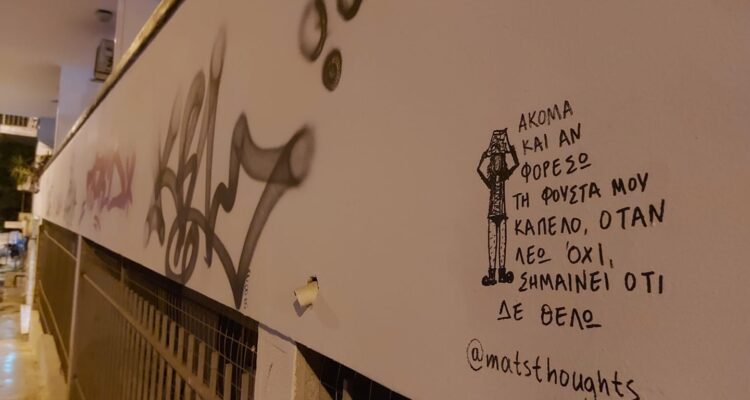 ΑΚΟΜΑ
ΚΑΙ ΑΝ
ΦΟΡΕΣΩ
ΤΗ ΦΟΥΣΤΑ ΜΟΥ
ΚΑΠΕΛΟ, ΟΤΑΝ
ΛΕΩ ΌΧΙ,
ΣΗΜΑΙΝΕΙ ΟΤΙ
ΔΕ ΘΕΛΩ
@matsthoughts